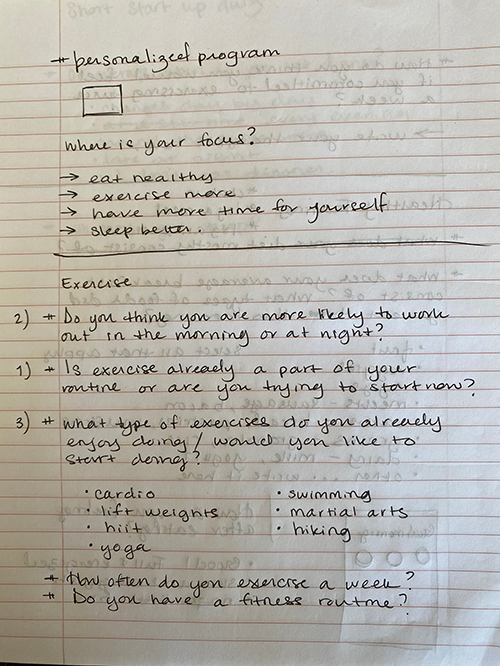 * personalized program
where is your focus?
→ eat healthy
→ exercise more
→ have more time for yourself
→ sleep better.
Exercise
2) * Do you think you are more likely to work
out in the morning or at night?
1) * Is exercise already a part of your
routine or are you trying to start now?
3) * what type of exercises do you already
enjoy doing / would you like to
start doing?
• cardio
• lift weights
• hiit
• yoga
• swimming
• martial arts
• hiking
* How often do you exercise a week?
* Do you have a fitness routine?